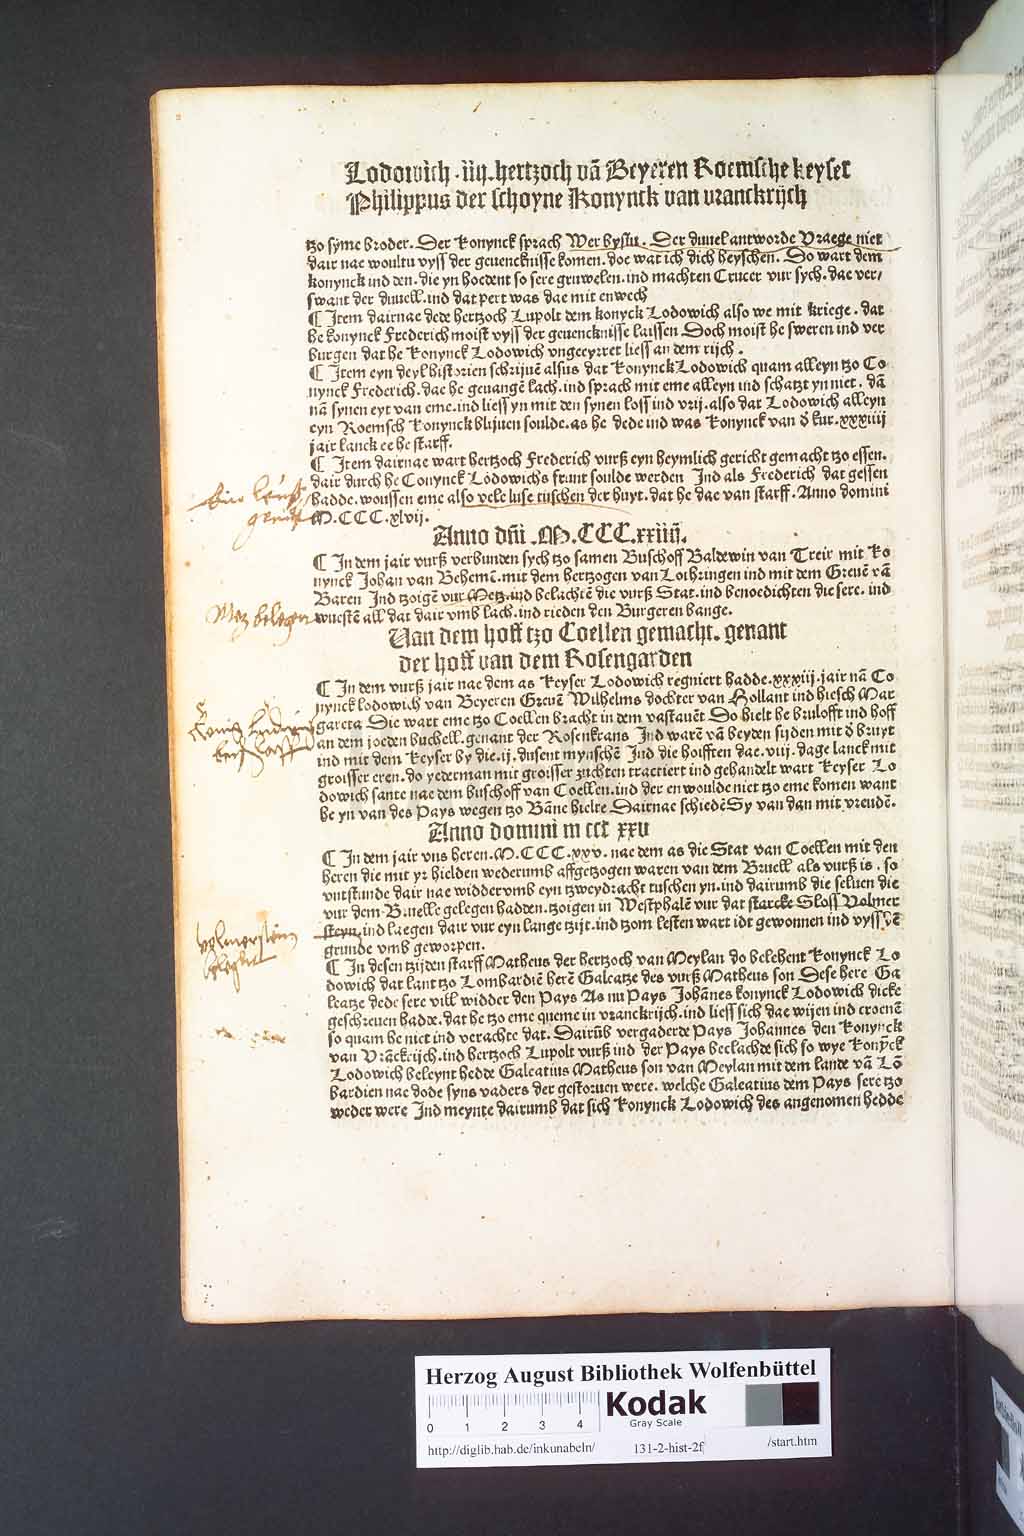 Lodowich .iiij. hertzoch vā Beyeren Roemsche keyser
Philippus der schoyne Konynck van vranckrijch
tzo syme broder. Der konynck sprach Wer bystu. Der duuel antworde Vraege niet
dair nae woultu vyss der geuencknisse komen. doe wat ich dich heyschen. Do wart dem
konynck ind den. die yn hoedent so sere gruwelen. ind machten Crucer vur sych. dae ver/
swant der duuell. ind dat pert was dae mit enwech
¶ Item dairnae dede hertzoch Lupolt dem konyck Lodowich also we mit kriege. dat
he konynck Frederich moist vyss der geuencknisse laissen Doch moist he sweren ind ver
burgen dat he konynck Lodowich vngeeyrret liess an dem rijch.
¶ Item eyn deyl historien schrijuē alsus dat konynck Lodowich quam alleyn tzo Co
nynck Frederich. dae he geuangē lach. ind sprach mit eme alleyn ind schatzt yn niet. dā
nā synen eyt van eme. ind liess yn mit den synen loss ind vrij. also dat Lodowich alleyn
eyn Roemsch konynck blijuen soulde. as he dede ind was konynck van d' kur. xxxiiij
jair lanck ee he starff.
¶ Item dairnae wart hertzoch Frederich vurß eyn heymlich gericht gemacht tzo essen.
dair durch he Conynck Lodowichs frunt soulde werden Ind als Frederich dat gessen
hadde. woussen eme also vele luse tuschen der huyt. dat he dae van starff. Anno domini
M.CCC.xlvij.
Anno dñi .M.CCC.xxiiij.
¶ In dem jair vurß verbunden sych tzo samen Buschoff Baldewin van Treir mit ko
nynck Johan van Behemē. mit dem hertzogen van Lothringen ind mit dem Greuē vā
Baren Ind tzoigē vur Metz. ind belachtē die vurß Stat. ind benoedichten die sere. ind
wuestē all dat dair vmb lach. ind rieden den Burgeren bange.
Van dem hoff tzo Coellen gemacht. genant
der hoff van dem Rosengarden
¶ In dem vurß jair nae dem as keyser Lodowich regniert hadde. xxxiij. jair nā Co
nynck lodowich van Beyeren Greuē Wilhelms dochter van Hollant ind hiesch Mar
gareta Die wart eme tzo Coellen bracht in dem vastauēt Do hielt he brulofft ind hoff
an dem joeden buchell. genant der Rosenkrans Ind warē vā beyden sijden mit d' bruyt
ind mit dem keyser by die .ij. dusent mynschē Ind die hoifften dae. viij. dage lanck mit
groisser eren. do yederman mit groisser zuchten tractiert ind gehandelt wart keyser Lo
dowich sante nae dem buschoff van Coellen. ind der en woulde niet tzo eme komen want
he yn van des Pays wegen tzo Bāne hielte Dairnae schiedē Sy van dan mit vreudē.
Anno domini m ccc xxv
¶ In dem jair vns heren. M.CCC.xxv. nae dem as die Stat van Coellen mit den
heren die mit yr hielden wederumb affgetzogen waren van dem Bruell als vurß is. so
vntstunde dair nae widdervmb eyn tzweydracht tuschen yn. ind dairumb die seluen die
vur dem Bruelle gelegen hadden. tzoigen in Westphalē vur dat starcke Sloss Volmer
steyn. ind laegen dair vur eyn lange tzijt. ind tzom lesten wart idt gewonnen ind vyss dē
grunde vmb geworpen.
¶ In desen tzijden starff Matheus der hertzoch van Meylan do belehent konynck Lo
dowich dat lant tzo Lombardiē herē Galeatze des vurß Matheus son Dese here Ga
leatze dede sere vill widder den Pays As nu Pays Johānes konynck Lodowich dicke
geschreuen hadde. dat he tzo eme queme in vranckrijch. ind liess sich dae wijen ind croenē
so quam he niet ind verachte dat. Dairūb vergaderde Pays Johannes den konynck
van Vrāckrijch. ind hertzoch Lupolt vurß ind der Pays beclachde sich so wye konȳck
Lodowich beleynt hedde Galeatius Matheus son van Meylan mit dem lande vā Lō
bardien nae dode syns vaders der gestoruen were. welche Galeatius dem Pays sere tzo
weder were Ind meynte dairumb dat sich konynck Lodowich des angenomen hedde
Metz belegen
Volmerstein
belegert
Herzog August Bibliothek Wolfenbüttel
0 1 2 3 4
Kodak
Gray Scale
http://diglib.hab.de/inkunabeln/ 131-2-hist-2f /start.htm